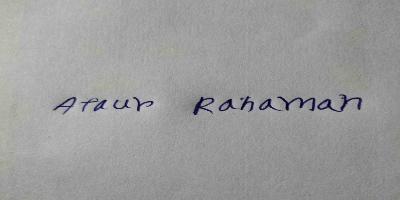 Ataur Rahaman